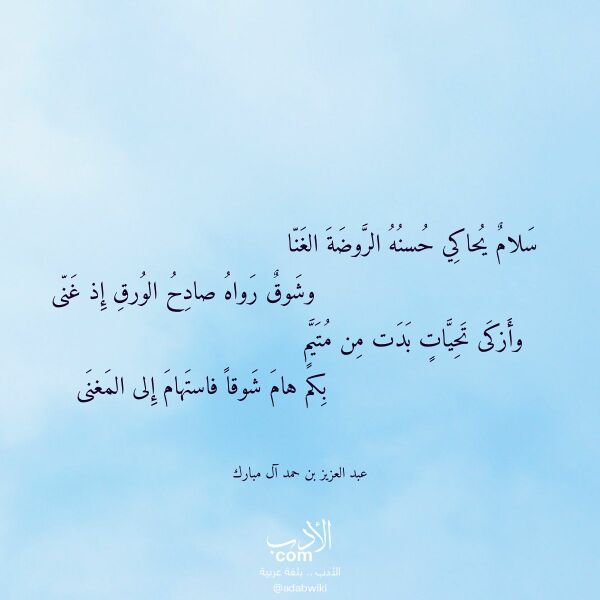 سَلامٌ يُحاكِي حُسنُهُ الرَّوضَةَ الغَنّا
وشَوقٌ رَواهُ صادِحُ الوُرقِ إِذ غَنّى
وأَزكَى تَحِيَّاتٍ بَدَت مِن مُتَيَّمٍ
بِكُم هامَ شَوقاً فاستَهامَ إِلى المَغنَى
عبد العزيز بن حمد آل مبارك
الأدب
com
الأدب .. بلغة عربية
@adabwiki